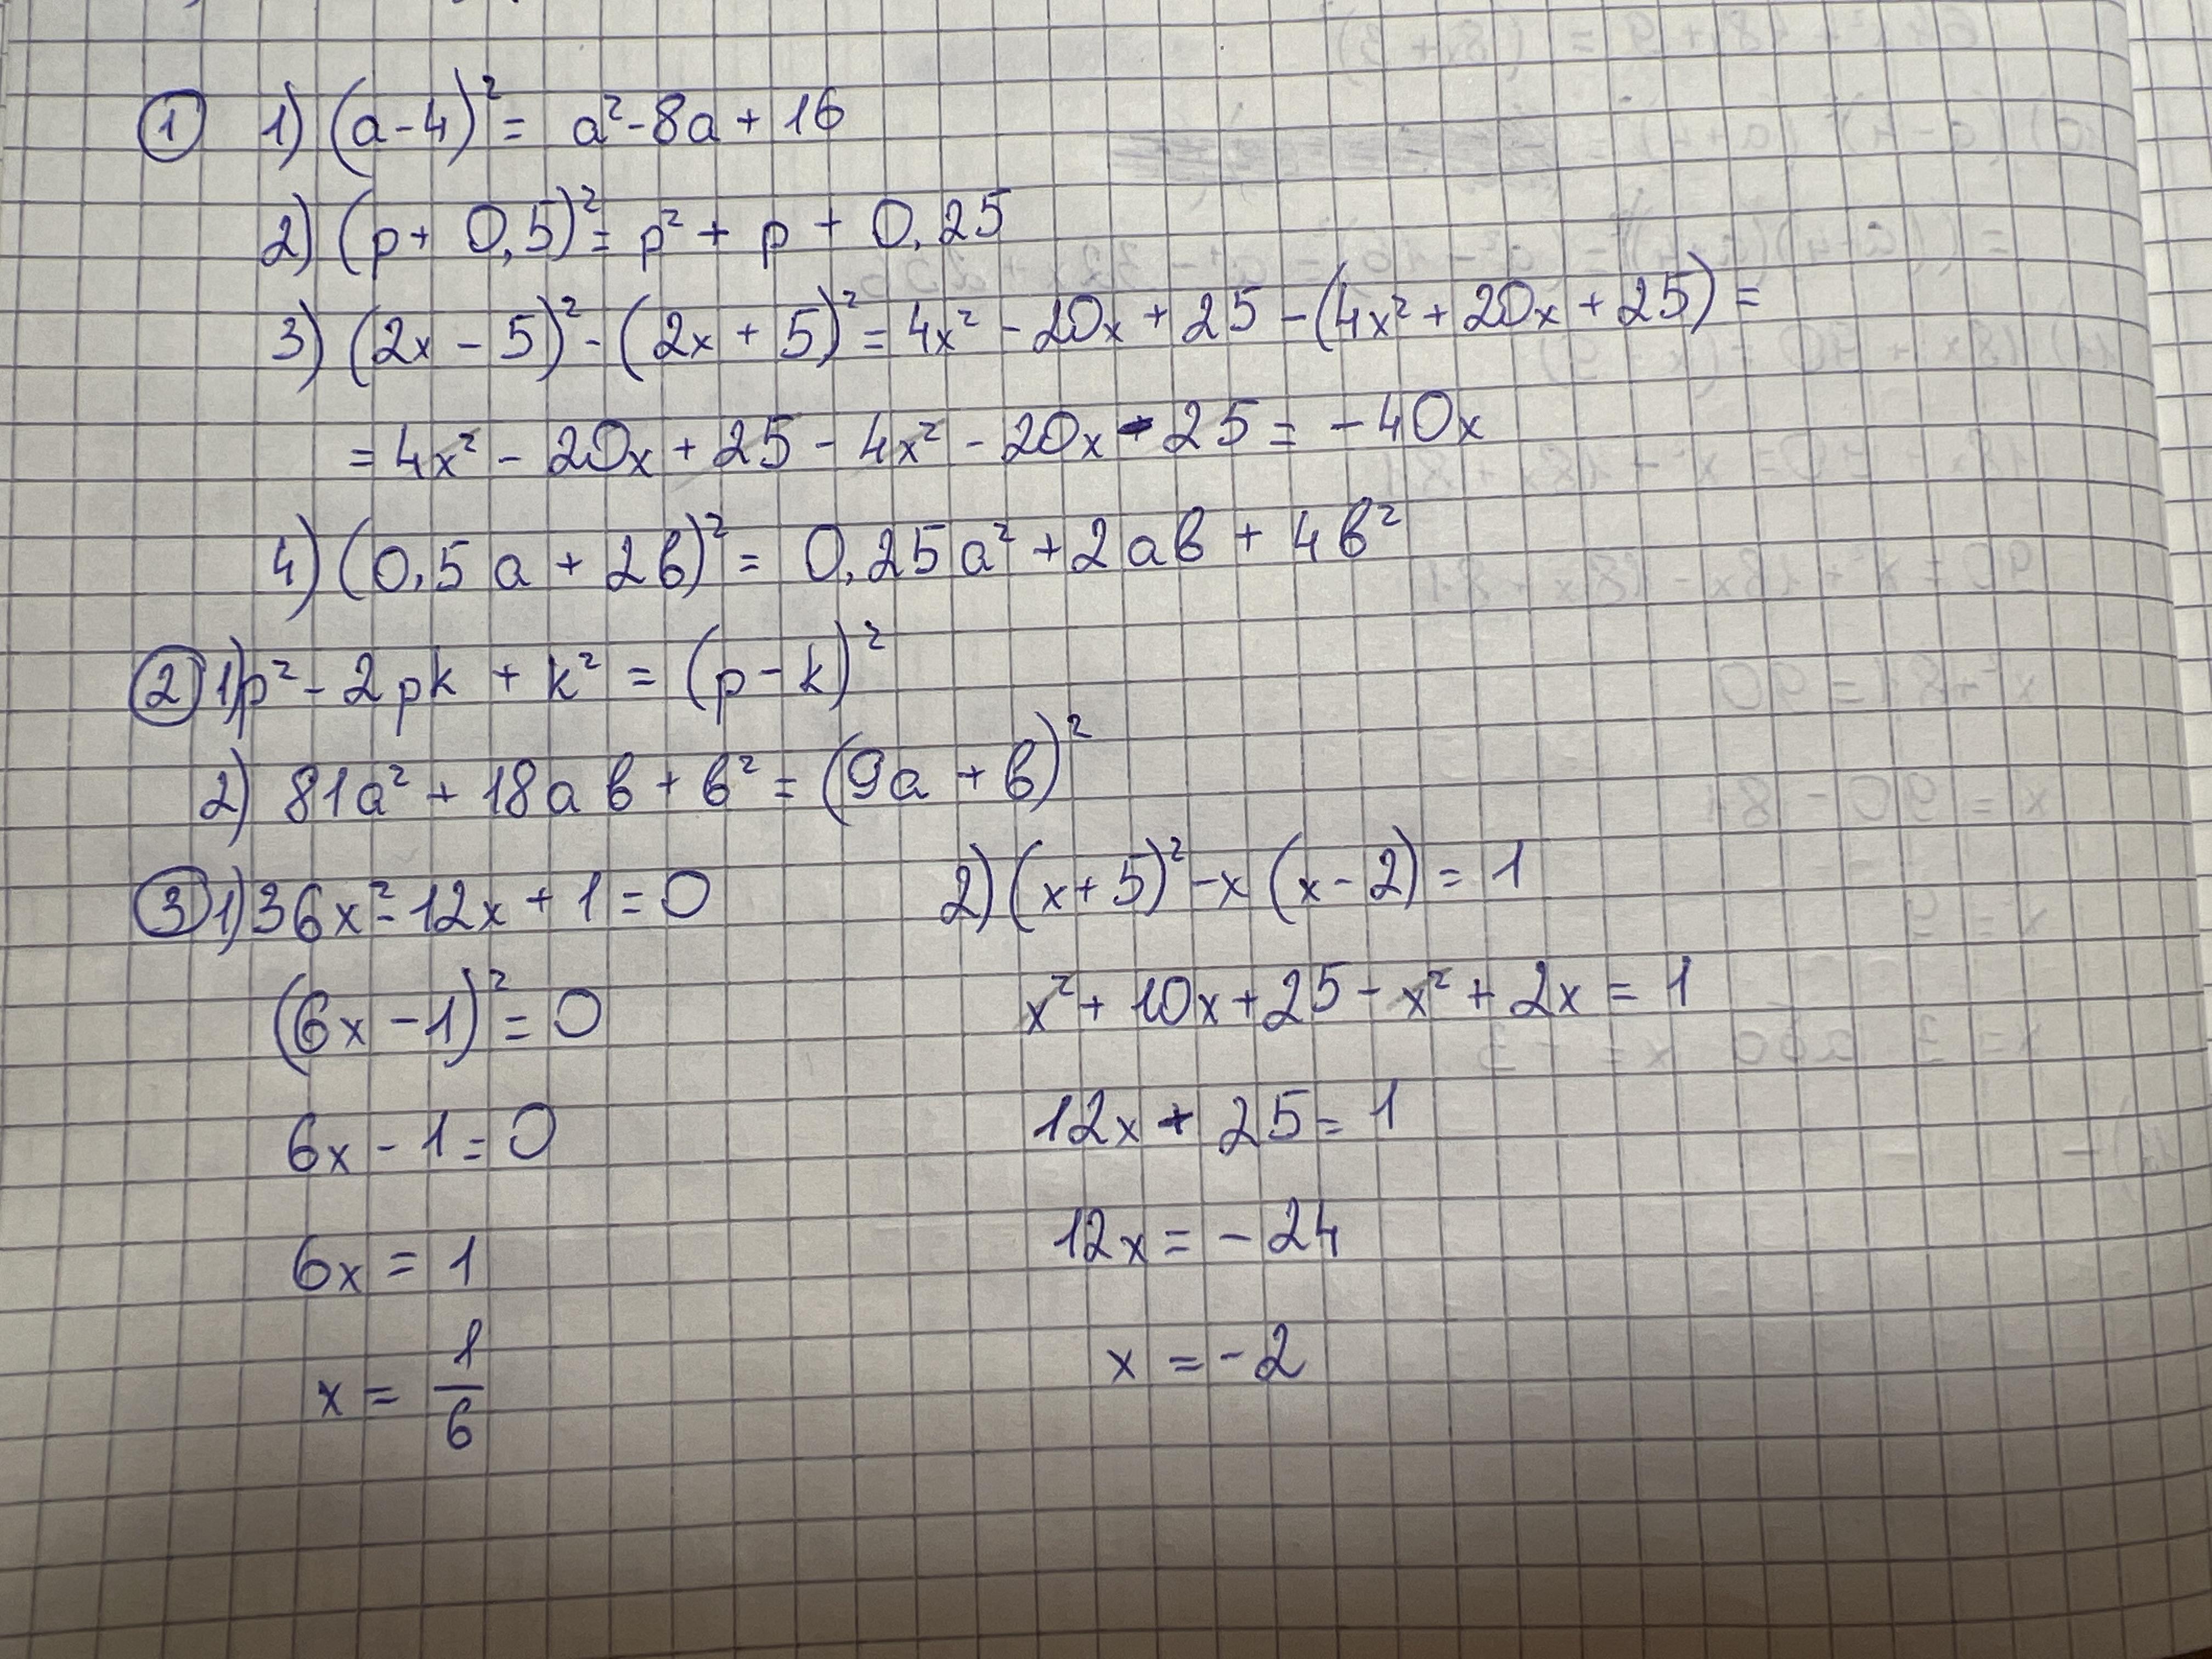 ① 1) (a-4)² = a²-8a + 16
2) (p+ 0,5)² = p² + p + 0,25
3) (2x - 5)² - (2x + 5)² = 4x² - 20x + 25 - (4x² + 20x + 25) =
= 4x² - 20x + 25 - 4x² - 20x - 25 = - 40x
4) (0,5 a + 2в)² = 0,25a² + 2aв + 4в²
② 1) p² - 2pk + k² = (p - k)²
2) 81a² + 18aв + в² = (9a + в)²
③ 1) 36x² - 12x + 1 = 0
(6x - 1)² = 0
6x - 1 = 0
6x = 1
x = 1/6
2) (x+5)² - x (x - 2) = 1
x² + 10x + 25 - x² + 2x = 1
12x + 25 = 1
12x = - 24
x = - 2